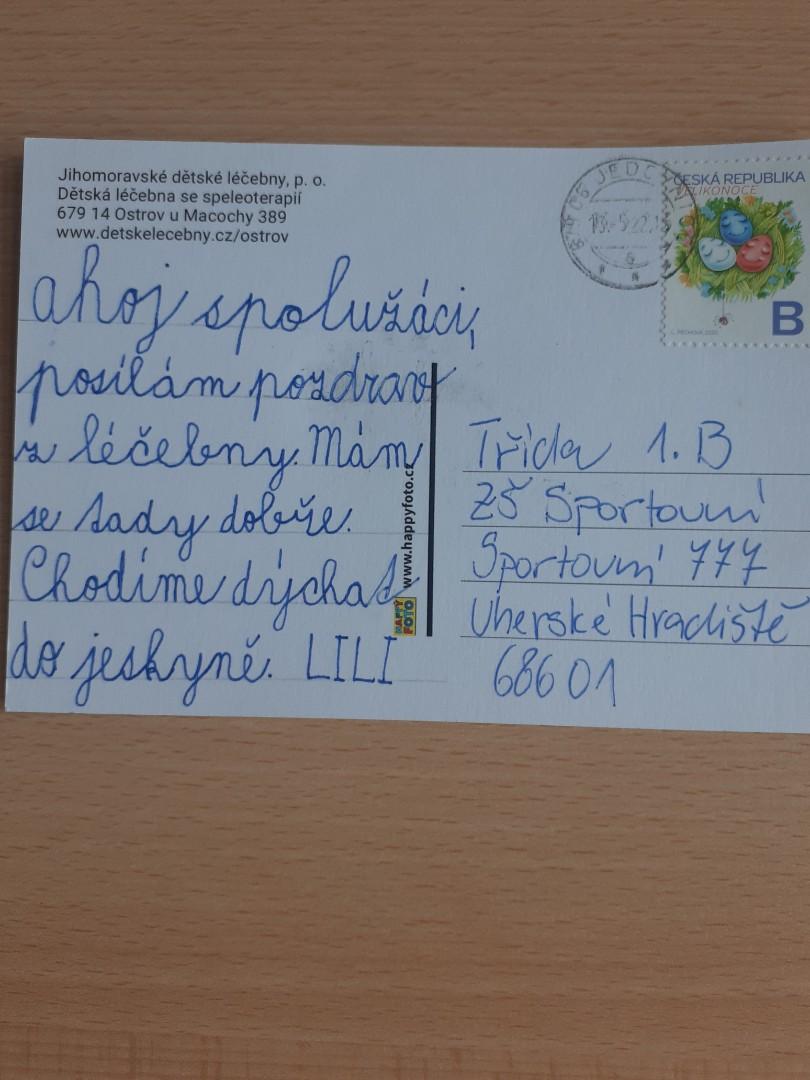 Jihomoravské dětské léčebny, p. o.
Dětská léčebna se speleoterapií
679 14 Ostrov u Macochy 389
www.detskelecebny.cz/ostrov
ČESKÁ REPUBLIKA
VELIKONOCE
B
ahoj spolužáci,
posílám pozdrav
z léčebny. Mám
se tady dobře.
Chodíme dýchat
do jeskyně. LILI
www.happyfoto.cz
HAPPY
FOTO
Třída 1. B
ZŠ Sportovní
Sportovní 777
Uherské Hradiště
686 01